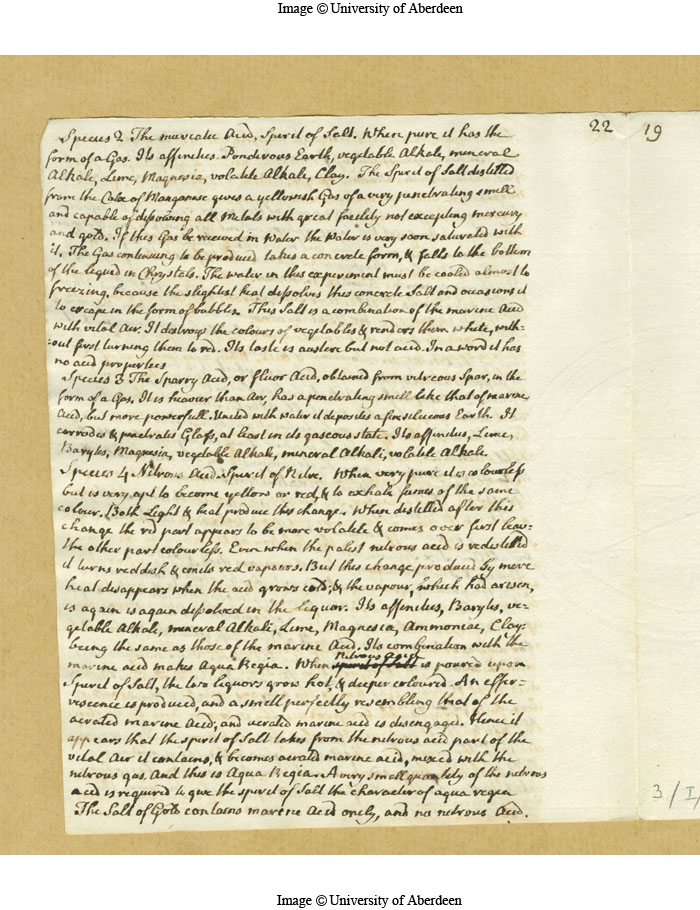 Image © University of Aberdeen
22
19
Species 2 The muriatic Acid, Spirit of Salt. When pure it has the
form of a Gas. Its affinities. Ponderous Earth, vegetable Alkale, mineral
Alkale, Lime, Magnesia, volatile Alkale, Clay. The Spirit of Salt distilled
from the Calx of Manganese gives a yellowish Gas of a very penetrating smell
and capable of dissolving all Metals with great facility not excepting mercury
and gold. If this Gas be received in Water the Water is very soon saturated with
it. The Gas continuing to be produced takes a concrete form, & falls to the bottom
of the liquid in Chrystals. The water in this experiment must be cooled almost to
freezing, because the slightest heat dissolves this concrete Salt and occasions it
to escape in the form of bubbles. This Salt is a combination of the marine Acid
with vital Air. It destroys the colours of vegetables & renders them white, with-
out first turning them to red. Its taste is austere but not acid. In a word it has
no acid properties
Species 3 The Sparry Acid, or fluor Acid, obtained from vitreous Spar, in the
form of a Gas. It is heavier than Air, has a penetrating smell like that of marine
Acid, but more powerfull. United with water it deposites a fine siliceous Earth. It
corrodes & penetrates Glass, at least in its gaseous state. Its affinities, Lime,
Barytes, Magnesia, vegetable Alkale, mineral Alkali, volatile Alkale.
Species 4 Nitrous Acid Spirit of Nitre. When very pure it is colourless
but is very apt to become yellow or red, & to exhale fumes of the same
colour. Both Light & heat produce this change. When distilled after this
change the red part appears to be more volatile & comes over first leav-
the other part colourless. Even when the palest nitrous acid is redistilled
it turns reddish & emits red vapours. But this change produced by mere
heat disappears when the acid grows cold; & the vapour, which had arisen,
is again is again dissolved in the liquor. Its affinities, Barytes, ve-
getable Alkale, mineral Alkali, Lime, Magnesia, Ammoniac, Clay:
being the same as those of the marine Acid. Its combination with the
marine acid makes Aqua Regia. When Nitrous Acid spirit of Salt is poured upon
Spirit of Salt, the two liquors grow hot, & deeper coloured. An effer-
vescence is produced, and a smell perfectly resembling that of the
aerated marine Acid; and aerated marine acid is disengaged. Hence it
appears that the spirit of Salt takes from the nitrous acid part of the
vital Air it contains, & becomes aerated marine acid, mixed with the
nitrous gas. And this is Aqua Regia. A very small quantity of the nitrous
acid is required to give the spirit of Salt the character of aqua regia
The Salt of Gold contains marine Acid only, and no nitrous Acid.
3/I/
Image © University of Aberdeen